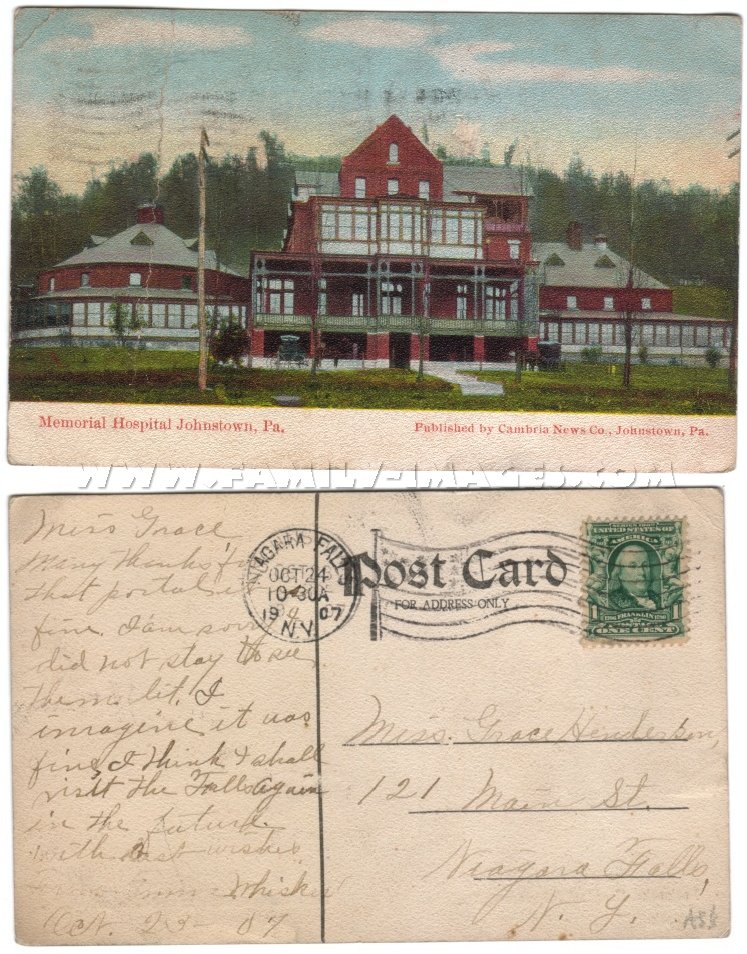 Memorial Hospital Johnstown, Pa.
Published by Cambria News Co., Johnstown, Pa.
WWW.FAMILY-IMAGES.COM
Miss Grace
Many thanks
that postal
fine. I am
did not stay to see
them lit. I
imagine it was
fine, I think I shall
visit the Falls again
in the future
with best wishes
Whiskie
Oct. 23 - 07
NIAGARA FALLS
OCT 24
10-30A
1907
N.Y.
Post Card
FOR ADDRESS ONLY
SERIES 1902
UNITED STATES OF
AMERICA
1 FRANKLIN 1
POSTAGE
ONE CENT
Miss. Grace Henderson,
121 Main St.
Niagara Falls,
N. Y.